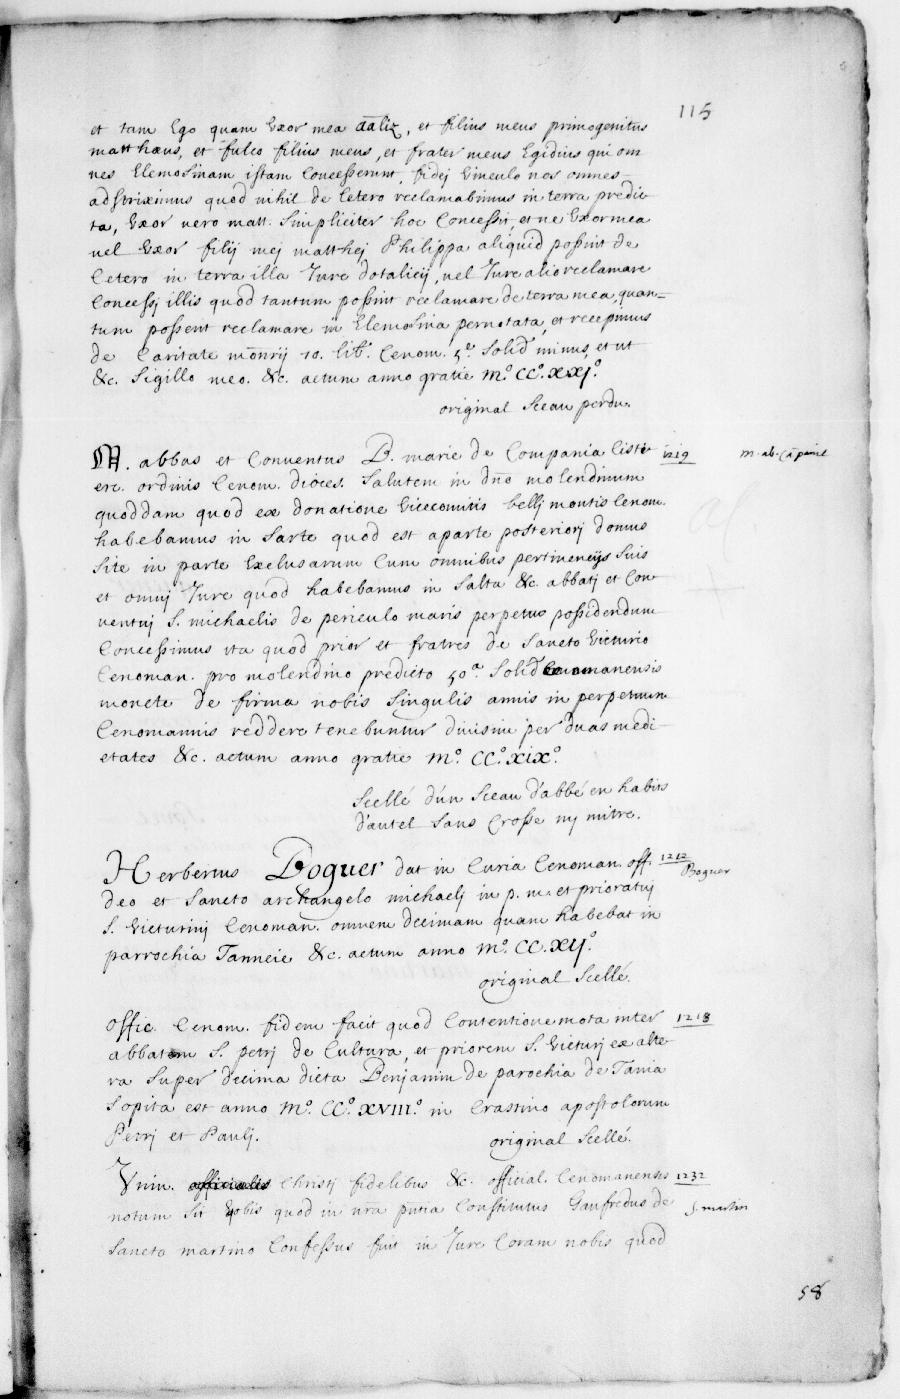 115
et tam Ego quam Uxor mea āāliz, et filius meus primogenitus
matthæus, et fulco filius meus, et frater meus Egidius qui om
nes Elemosinam istam Concesserunt, fidej Vinculo nos omnes
adstriximus quod nihil de Cetero reclamabimus in terra predic
ta, Uxor vero matt. Simpliciter hoc Concessit, et ne Uxor mea
vel Uxor filij mej matthej Philippa aliquid possint de
Cetero in terra illa Jure dotalicij, vel Jure alio reclamare
Concessj illis quod tantum possint reclamare de terra mea, quan=
tum possent reclamare in Elemosina pernotata, et recepimus
de Caritate mōnrij 10. lib. Cenom. 5.e Solid minus, et ut
&c. Sigillo meo. &c. actum anno gratie M.o CC.o XXJ.o
original Sceau perdu.
M. abbas et Conventus B. marie de Compania Cisti 1219 m. ab. Cāpanie
erc. ordinis Cenom. dioces. Salutem in dn̄o molendinum
quoddam quod ex donatione Vicecomitis bellj montis Cenom.
habebamus in Sarte quod est aparte posteriorj domus
Site in parte Exclusarum Cum omnibus pertinencijs Suis
et omnj Jure quod habebamus in Salta &c. abbatj et Con
ventuj S. michaelis de periculo maris perpetuo possidendum
Concessimus ita quod prior et fratres de Sancto Victurio
Cenoman. pro molendino predicto 50.a Solid Cenomanensis
monete de firma nobis Singulis annis in perpetuum
Cenomannis reddere tenebuntur divisim per duas medi
etates &c. actum anno gratie M.o CC.o XIX.o
Scellé d'un Sceau d'abbé en habits
d'autel Sans Crosse ny mitre.
Herbertus Boguer dat in Curia Cenoman. off. 1212 Boguer
deo et Sancto archangelo michaelj in p. m. et prioratuj
S. Victurinj Cenoman. omnem decimam quam habebat in
parrochia Tanneie &c. actum anno M.o CC. XIJ.o
original Scellé.
Offic. Cenom. fidem facit quod Contentione mota inter 1218
abbatem S. petrj de Cultura, et priorem S. Victurj ex alte
ra Super decima dicta Benjamin de parochia de Tania
Sopita est anno M.o CC.o XVIII.o in Crastino apostolorum
Petrj et Paulj. original Scellé.
Univ. Christj fidelibus &c. official. Cenomanensis 1232
notum Sit Vobis quod in nr̄a pn̄tia Constitutus Gaufredus de S. martin
Sancto martino Confessus fuit in Jure Coram nobis quod
58